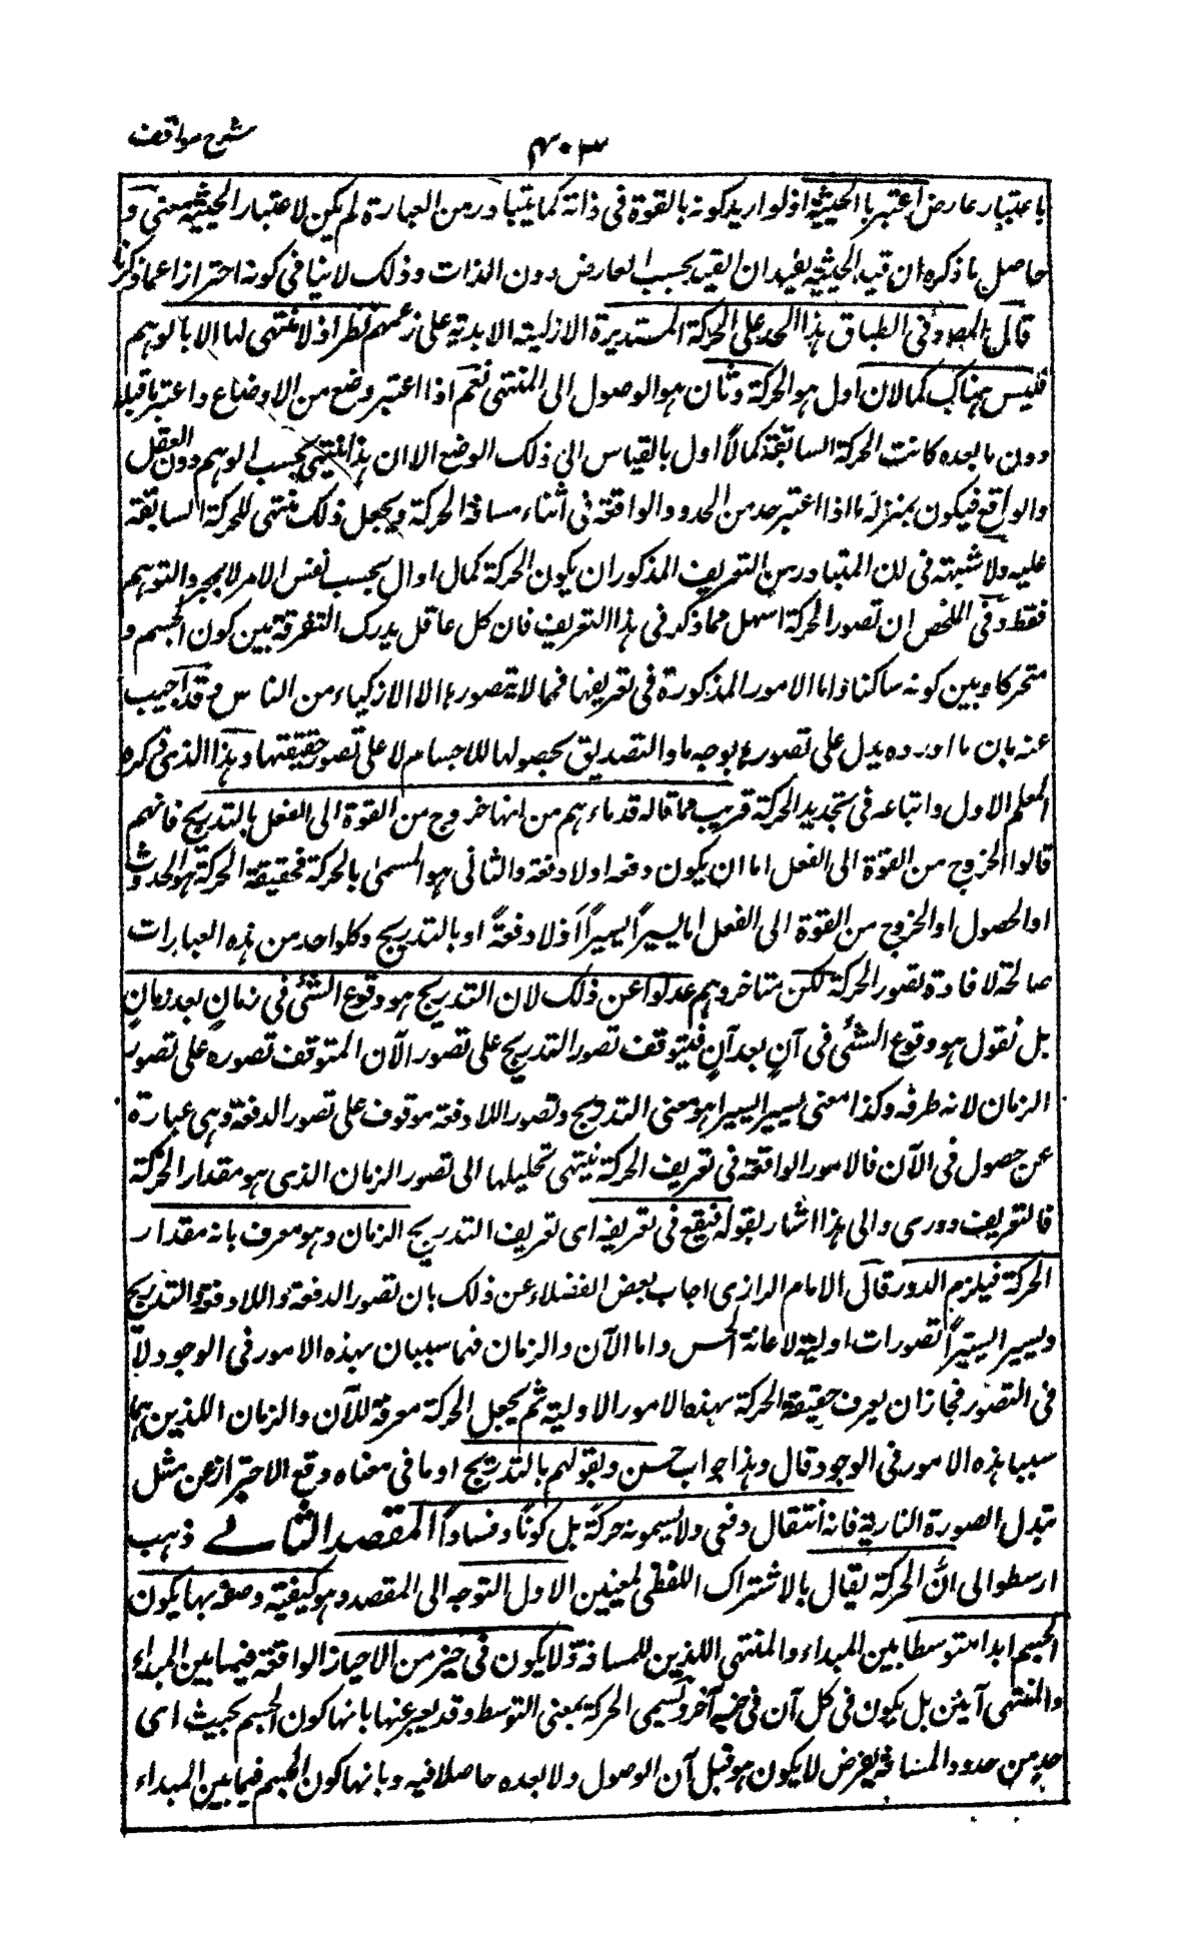 شرح مواقف
٤٠٣
باعتبار عارض اعتبر بالحيثية اذ لو اريد كونه بالقوة فى ذاته كما يتبادر من العبارة لم يكن لاعتبار الحيثية معنى و
حاصل ما ذكره ان قيد الحيثية يفيد ان القيد بحسب العارض دون الذات وذلك لا ينافى كونه احترازا عما ذكرنا
قال المصـ وفى انطباق هذا الحد على الحركة المستديرة الازلية الابدية على زعمهم نظر اذ لا منتهى لها الا بالوهم
فليس هناك كمالان اول هو الحركة وثان هو الوصول الى المنتهى نعم اذا اعتبر وضع من الاوضاع واعتبر ما قبله
دون ما بعده كانت الحركة السابقة كمالاً اول بالقياس الى ذلك الوضع الا ان هذا منتهى بحسب الوهم دون العقل
والواقع فيكون بمنزلة ما اذا اعتبر حد من الحدود الواقعة فى اثناء مسافة الحركة ويجعل ذلك منتهى للحركة السابقة
عليه ولا شبهة فى ان المتبادر من التعريف المذكور ان يكون الحركة كمال اول بحسب نفس الامر لا بمجرد التوهم
فقط وفى الملخص ان تصور الحركة اسهل مما ذكر فى هذا التعريف فان كل عاقل يدرك التفرقة بين كون الجسم و
متحركا وبين كونه ساكنا واما الامور المذكورة فى تعريفها فمما لا يتصورها الا الاذكياء من الناس وقد اجيب
عنه بان ما اورده يدل على تصورها بوجه ما والتصديق بحصولها للاجسام لا على تصور حقيقتها وهذا الذى ذكره
المعلم الاول واتباعه فى تحديد الحركة قريب مما قاله قدماءهم من انها خروج من القوة الى الفعل بالتدريج فانهم
قالوا الخروج من القوة الى الفعل اما ان يكون دفعة اولا دفعة والثانى هو المسمى بالحركة فحقيقة الحركة هو الحدوث
او الحصول او الخروج من القوة الى الفعل اما يسيراً يسيراً او لا دفعةً او بالتدريج وكل واحد من هذه العبارات
صالحة لافادة تصور الحركة لكن متاخروهم عدلوا عن ذلك لان التدريج هو وقوع الشئ فى زمانٍ بعد زمانٍ
بل نقول هو وقوع الشئ فى آنٍ بعد آنٍ فيتوقف تصور التدريج على تصور الآن المتوقف تصوره على تصور
الزمان لانه طرفه وكذا معنى يسيرا يسيرا هو معنى التدريج وتصور اللا دفعة موقوف على تصور الدفعة وهى عبارة
عن حصول فى الآن فالامور الواقعة فى تعريف الحركة ينتهى تحليلها الى تصور الزمان الذى هو مقدار الحركة
فالتعريف دورى والى هذا اشار بقوله فيقع فى تعريفه اى تعريف التدريج الزمان وهو معرف بانه مقدار
الحركة فيلزم الدور قال الامام الرازى اجاب بعض الفضلاء عن ذلك بان تصور الدفعة واللا دفعة والتدريج
ويسيرا يسيراً تصورات اولية لاعانة الحس واما الآن والزمان فهما سببان بهذه الامور فى الوجود لا
فى التصور فجاز ان يعرف حقيقة الحركة بهذه الامور الاولية ثم يجعل الحركة معرفة للآن والزمان اللذين هما
سببا هذه الامور فى الوجود قال وهذا جواب حسن وبقولهم بالتدريج او ما فى معناه وقع الاحتراز عن مثل
تبدل الصورة النارية فانه انتقال دفعى ولا يسمونه حركةً بل كونًا وفسادًا المقصد الثانى ذهب
ارسطو الى ان الحركة يقال بالاشتراك اللفظى لمعنيين الاول التوجه الى المقصد وهو كيفية وصفة بها يكون
الجسم ابدا متوسطا بين المبداء والمنتهى اللذين للمسافة ولا يكون فى حيز من الاحياز الواقعة فيما بين المبداء
والمنتهى آنين بل يكون فى كل آن فى حيز آخر ويسمى الحركة بمعنى التوسط وقد يعبر عنها بانها كون الجسم بحيث اى
حد من حدود المسافة يفرض لا يكون هو قبل آن الوصول ولا بعده حاصلا فيه وبانها كون الجسم فيما بين المبداء